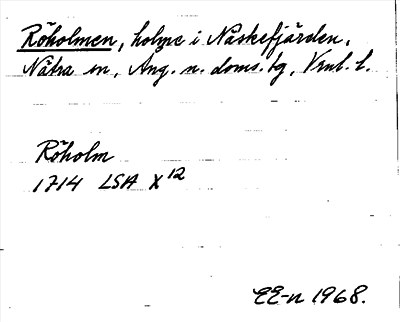 Röholmen, holme i Näskefjärden,
Nätra sn, Ång. n. doms. tg, Vnl. l.
Röholm
1714 LSA X¹²
EE-n 1968.